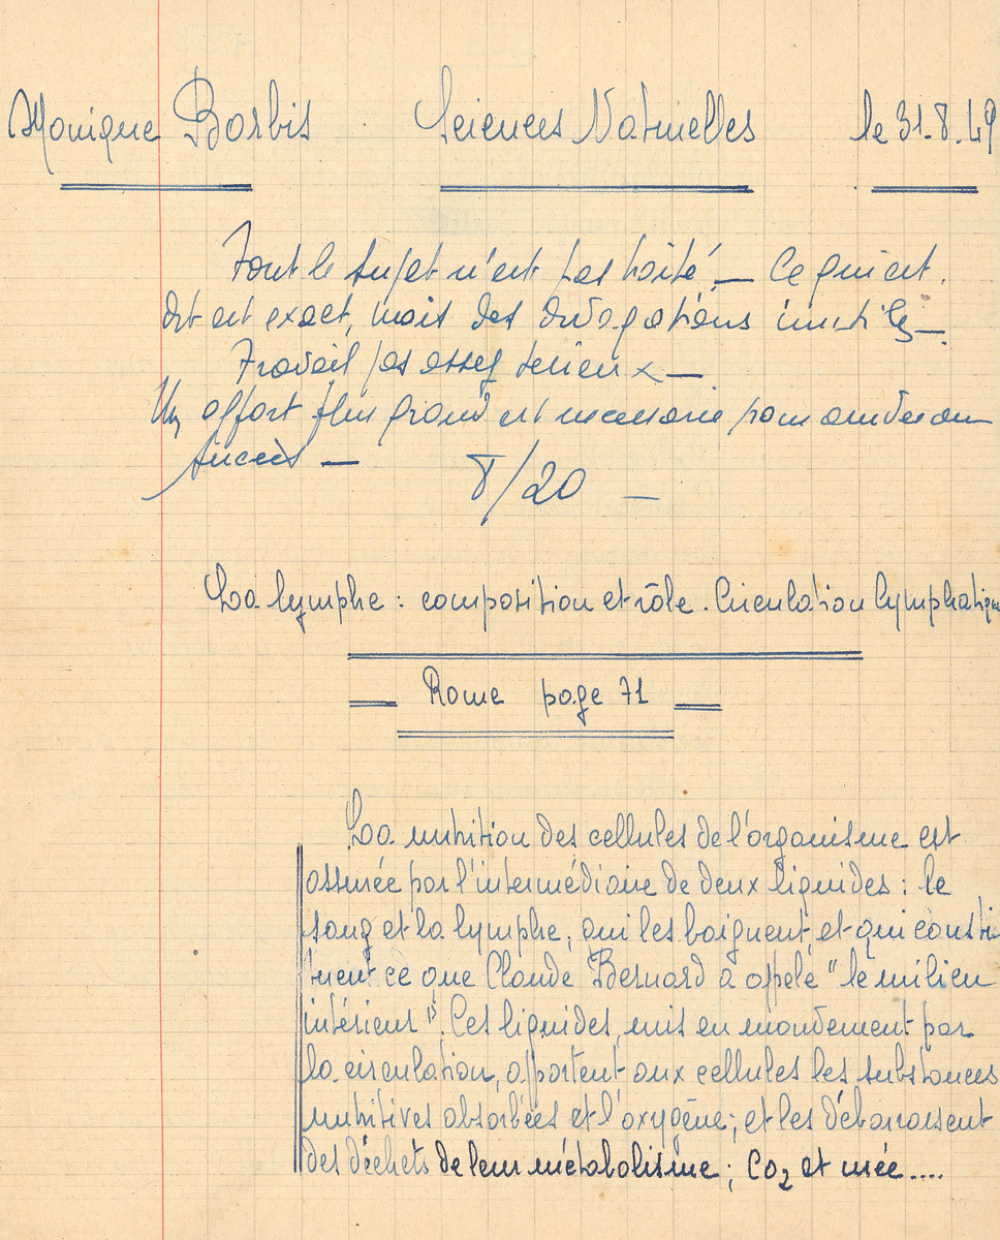 Monique Borbis Sciences Naturelles le 31.8.49
Tout le sujet n'est pas traité. — Ce qui est
dit est exact, mais des divagations inutiles —
Travail pas assez sérieux —
Un effort plus grand est nécessaire pour
succès — 8/20 —
La lymphe : composition et rôle. Circulation lymphatique
— Rome page 71 —
La nutrition des cellules de l'organisme est
assurée par l'intermédiaire de deux liquides : le
sang et la lymphe, qui les baignent, et qui consti
tuent ce que Claude Bernard a appelé "le milieu
intérieur". Ces liquides, mis en mouvement par
la circulation, apportent aux cellules les substances
nutritives absorbées et l'oxygène ; et les débarrassent
des déchets de leur métabolisme ; CO2 et urée....